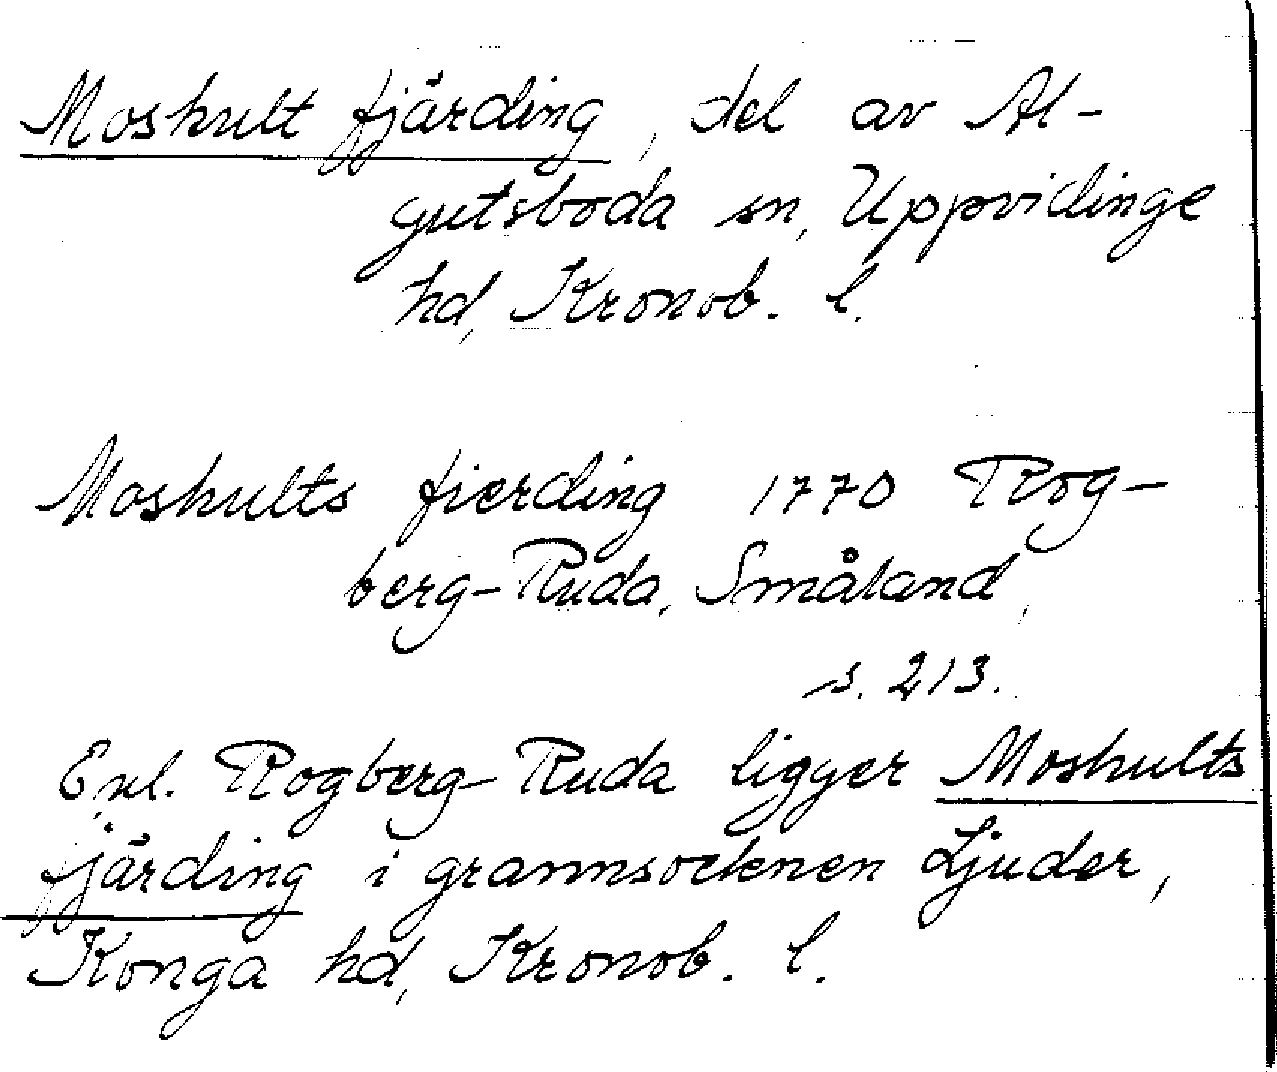 Moshult fjärding, del av Al-
gutsboda sn, Uppvidinge
hd, Kronob. l.
Moshults fierding 1770 Rog-
berg-Ruda, Småland,
s. 213.
Enl. Rogberg-Ruda ligger Moshults
fjärding i grannsocknen Ljuder,
Konga hd, Kronob. l.